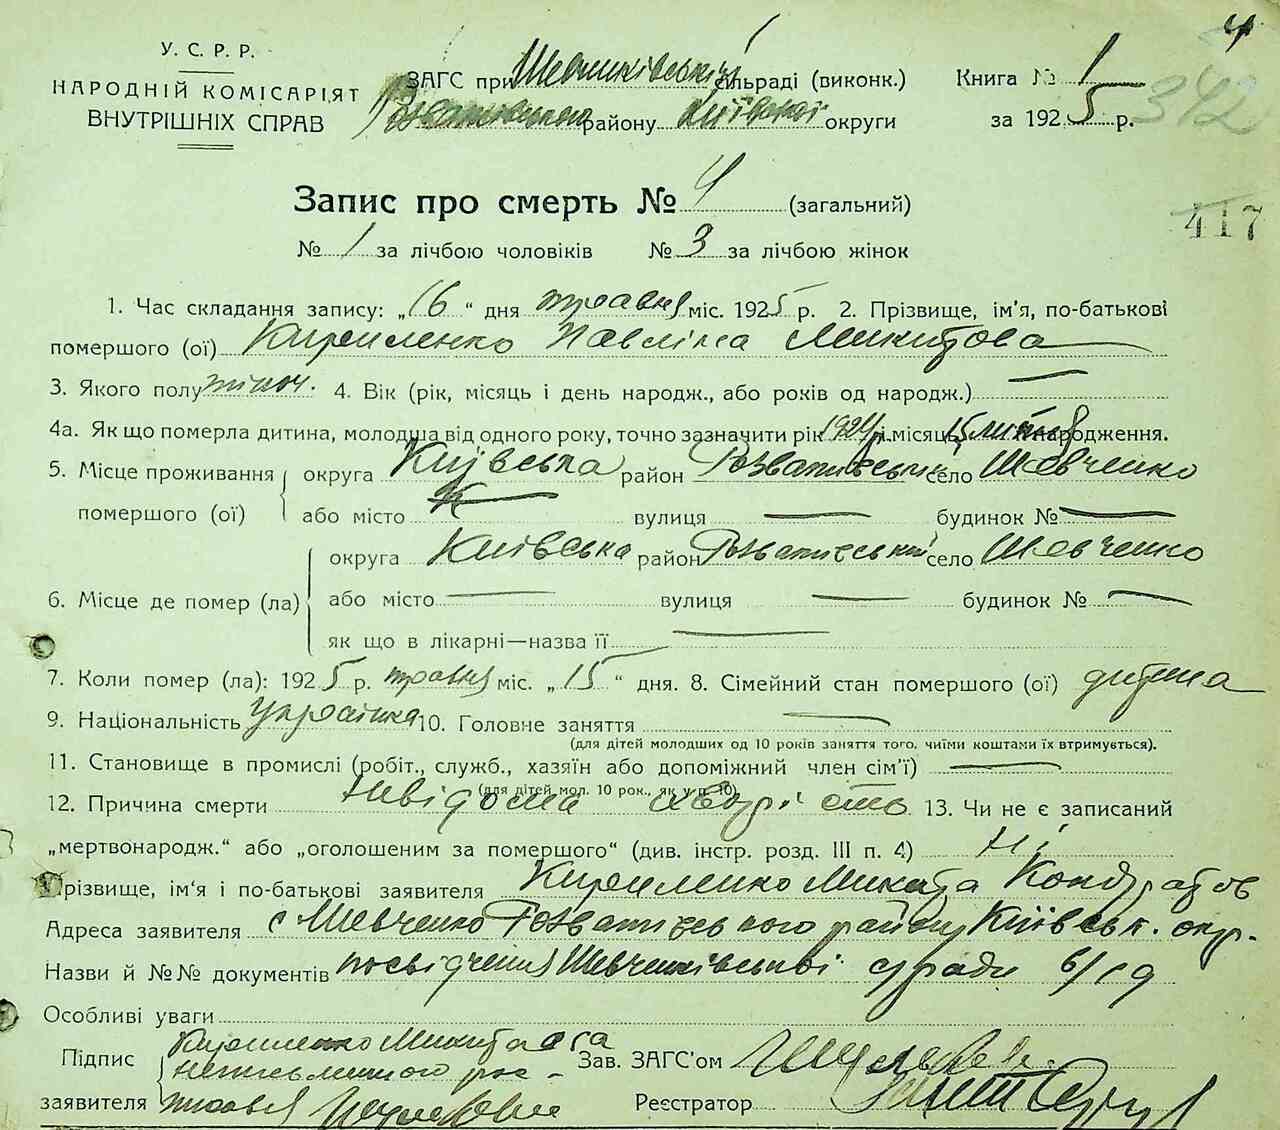 4
У. С. Р. Р.
НАРОДНІЙ КОМІСАРІЯТ
ВНУТРІШНІХ СПРАВ
ЗАГС при Шевченківській сільраді (виконк.)
Розваживського району Київської округи
Книга № 1
за 1925 р.
342
417
Запис про смерть № 4 (загальний)
№ 1 за лічбою чоловіків № 3 за лічбою жінок
1. Час складання запису: „16 “ дня травня міс. 1925 р. 2. Прізвище, ім’я, по-батькові
помершого (ої) Кириленко Павліна Микитова
3. Якого полу жіноч. 4. Вік (рік, місяць і день народж., або років од народж.) —
4а. Як що померла дитина, молодша від одного року, точно зазначити рік 1924 р. і місяць 15 народження.
5. Місце проживання помершого (ої) округа Київська район Розваживський село Шевченко
або місто — вулиця — будинок № —
6. Місце де помер (ла) округа Київська район Розваживський село Шевченко
або місто — вулиця — будинок № —
як що в лікарні—назва її —
7. Коли помер (ла): 1925 р. травня міс. „15 “ дня. 8. Сімейний стан помершого (ої) дитина
9. Національність українка 10. Головне заняття —
(для дітей молодших од 10 років заняття того, чиїми коштами їх втримується).
11. Становище в промислі (робіт., служб., хазяїн або допоміжний член сім’ї) —
(для дітей мол. 10 рок., як у п. 10)
12. Причина смерти Невідома 13. Чи не є записаний
„мертвонародж.“ або „оголошеним за помершого“ (див. інстр. розд. III п. 4) Ні
Прізвище, ім’я і по-батькові заявителя Кириленко Микита Кондратов
Адреса заявителя с Шевченко Розваживського району Київськ. окр.
Назви й №№ документів посвідчення Шевченківської с/ради 6/19
Особливі уваги
Підпис заявителя Кириленко Микита а за
неписьменного рос-
Зав. ЗАГС’ом
Реєстратор